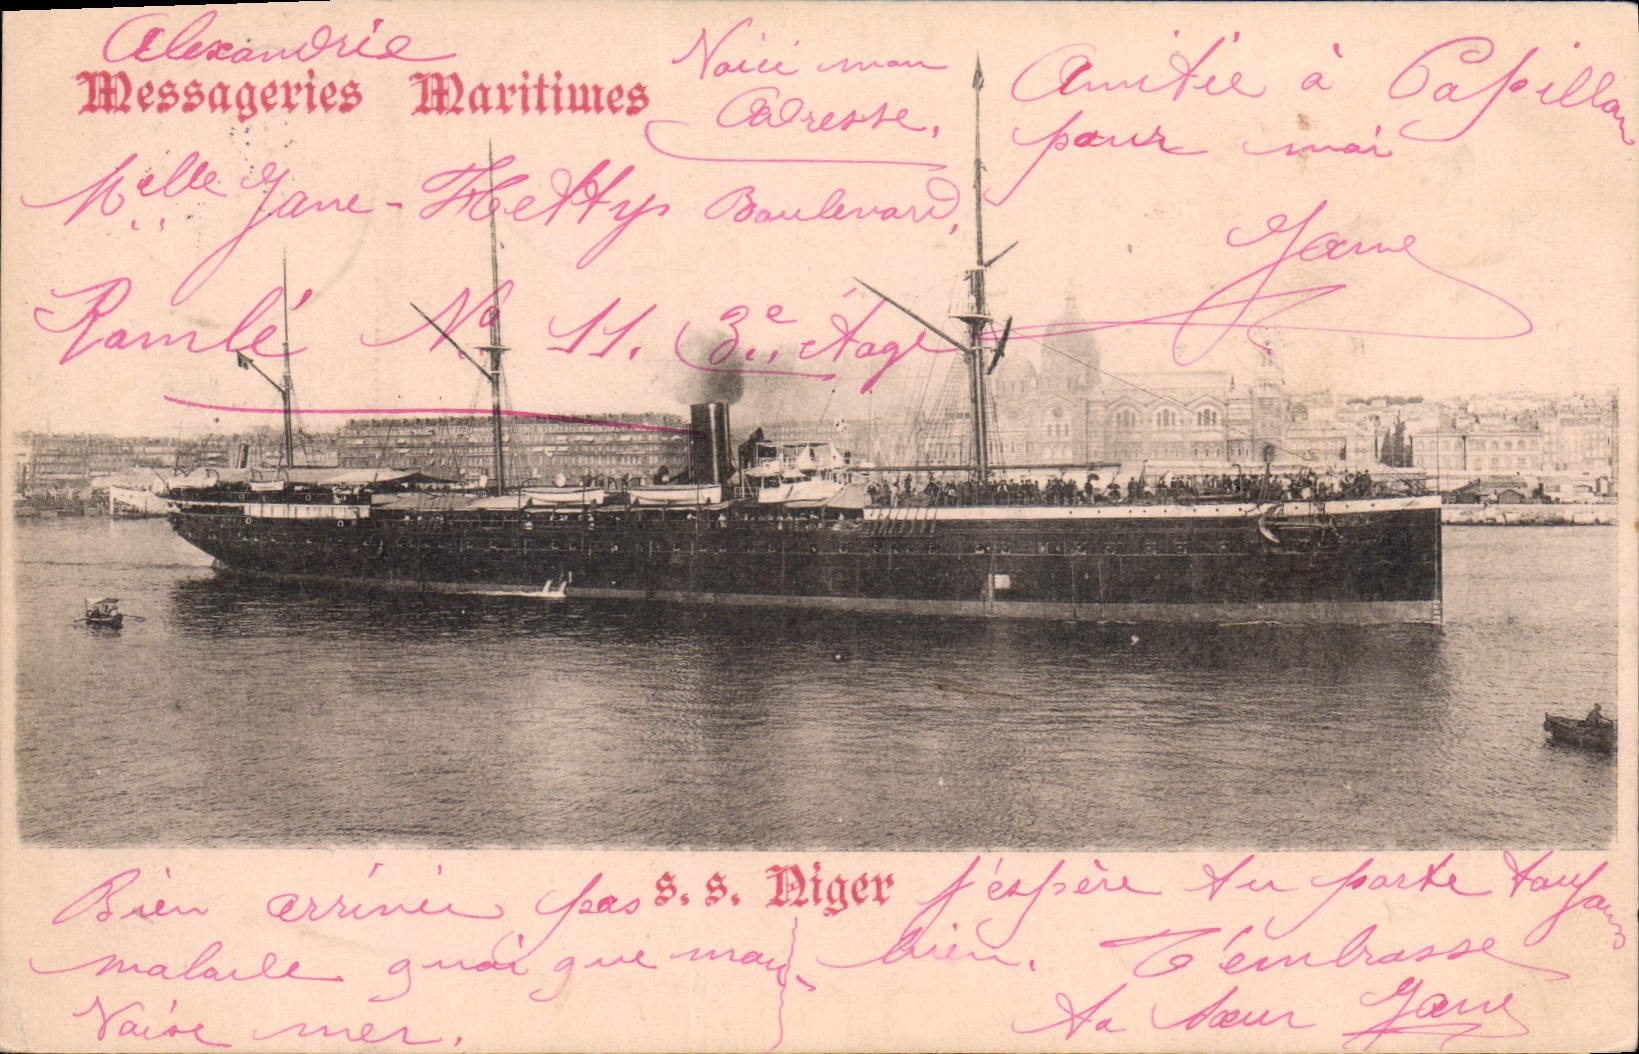 Alexandrie
Messageries Maritimes
Voici mon
Adresse.
Melle Jane-Hettys Boulevard,
Ramlé No 11. 3e étage
Amitié à Papillon
pour moi
Jane
s. s. Niger
Bien arrivée pas
malade quoique mau-
vaise mer.
j'espère tu porte toujours
bien. T'embrasse
ta sœur Jane